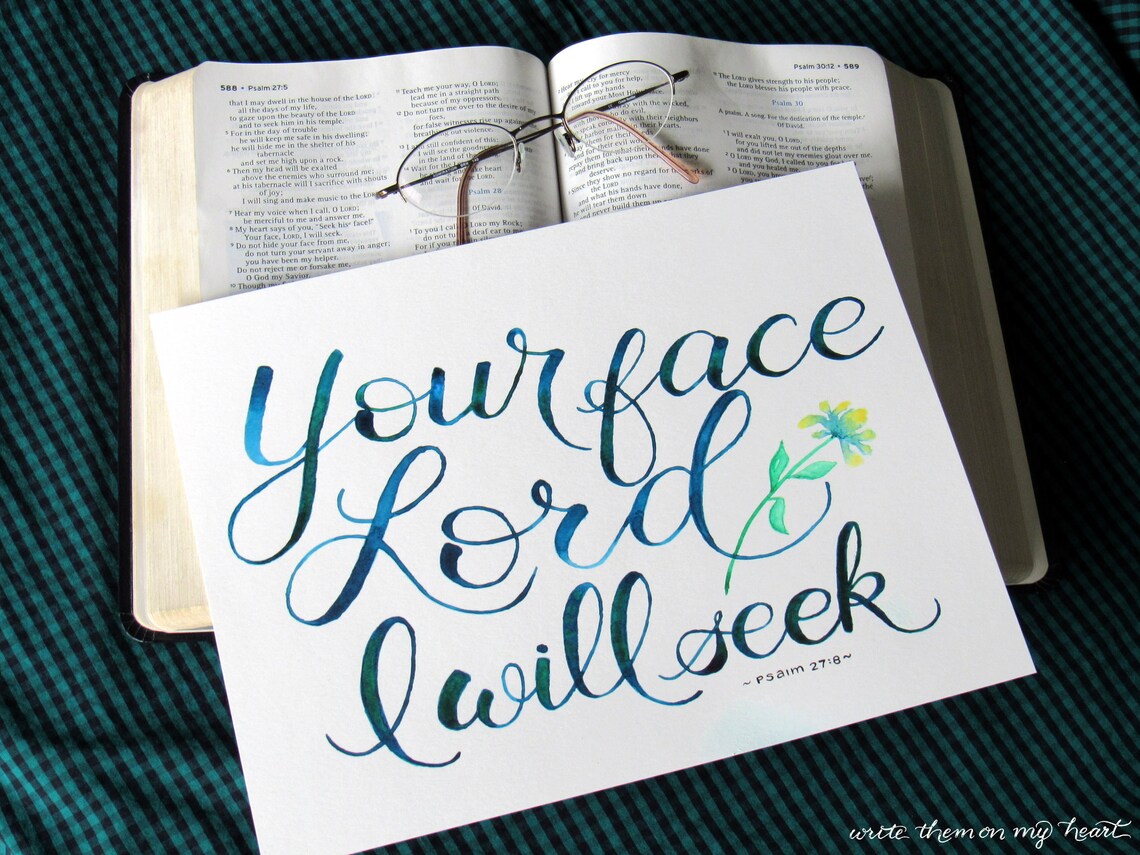 588 • Psalm 27:5
that I may dwell in the house of the LORD
all the days of my life,
to gaze upon the beauty of the LORD
and to seek him in his temple.
5 For in the day of trouble
he will keep me safe in his dwelling;
he will hide me in the shelter of his
tabernacle
and set me high upon a rock.
6 Then my head will be exalted
above the enemies who surround me;
at his tabernacle will I sacrifice with shouts
of joy;
I will sing and make music to the LORD
7 Hear my voice when I call, O LORD;
be merciful to me and answer me.
8 My heart says of you, "Seek his face!"
Your face, LORD, I will seek.
9 Do not hide your face from me,
do not turn your servant away in anger;
you have been my helper.
Do not reject me or forsake me,
O God my Savior.
10 Though my
11 Teach me your way, O LORD;
lead me in a straight path
because of my oppressors.
12 Do not turn me over to the desire of my
foes,
for false witnesses rise up against
breathing out violence.
still confident of this:
I will see the goodness
in the land of the
Wait for the
heart
and wait for the LORD.
Psalm 28
Of David.
1 To you I call, O LORD my Rock;
do not turn deaf ear to me
For if you
2 Hear my cry for mercy
call to you for help,
lift up my hands
toward your Most
with the wicked,
do evil,
speak cordially with their neighbors
harbor malice in their hearts.
them for their
and for their evil work
repay them for what their hands have done
and bring back upon them
deserve.
5 Since they show no regard for the works of
the LORD
and what his hands have done,
he will tear them down
and never build them up
Psalm 30:12 • 589
11 The LORD gives strength to his people;
the LORD blesses his people with peace.
Psalm 30
A psalm. A song. For the dedication of the temple.
Of David.
1 I will exalt you, O LORD,
for you lifted me out of the depths
and did not let my enemies gloat over me.
2 O LORD my God, I called to you for
and you healed me.
Your face
Lord
I will seek
~ Psalm 27:8 ~
write them on my heart